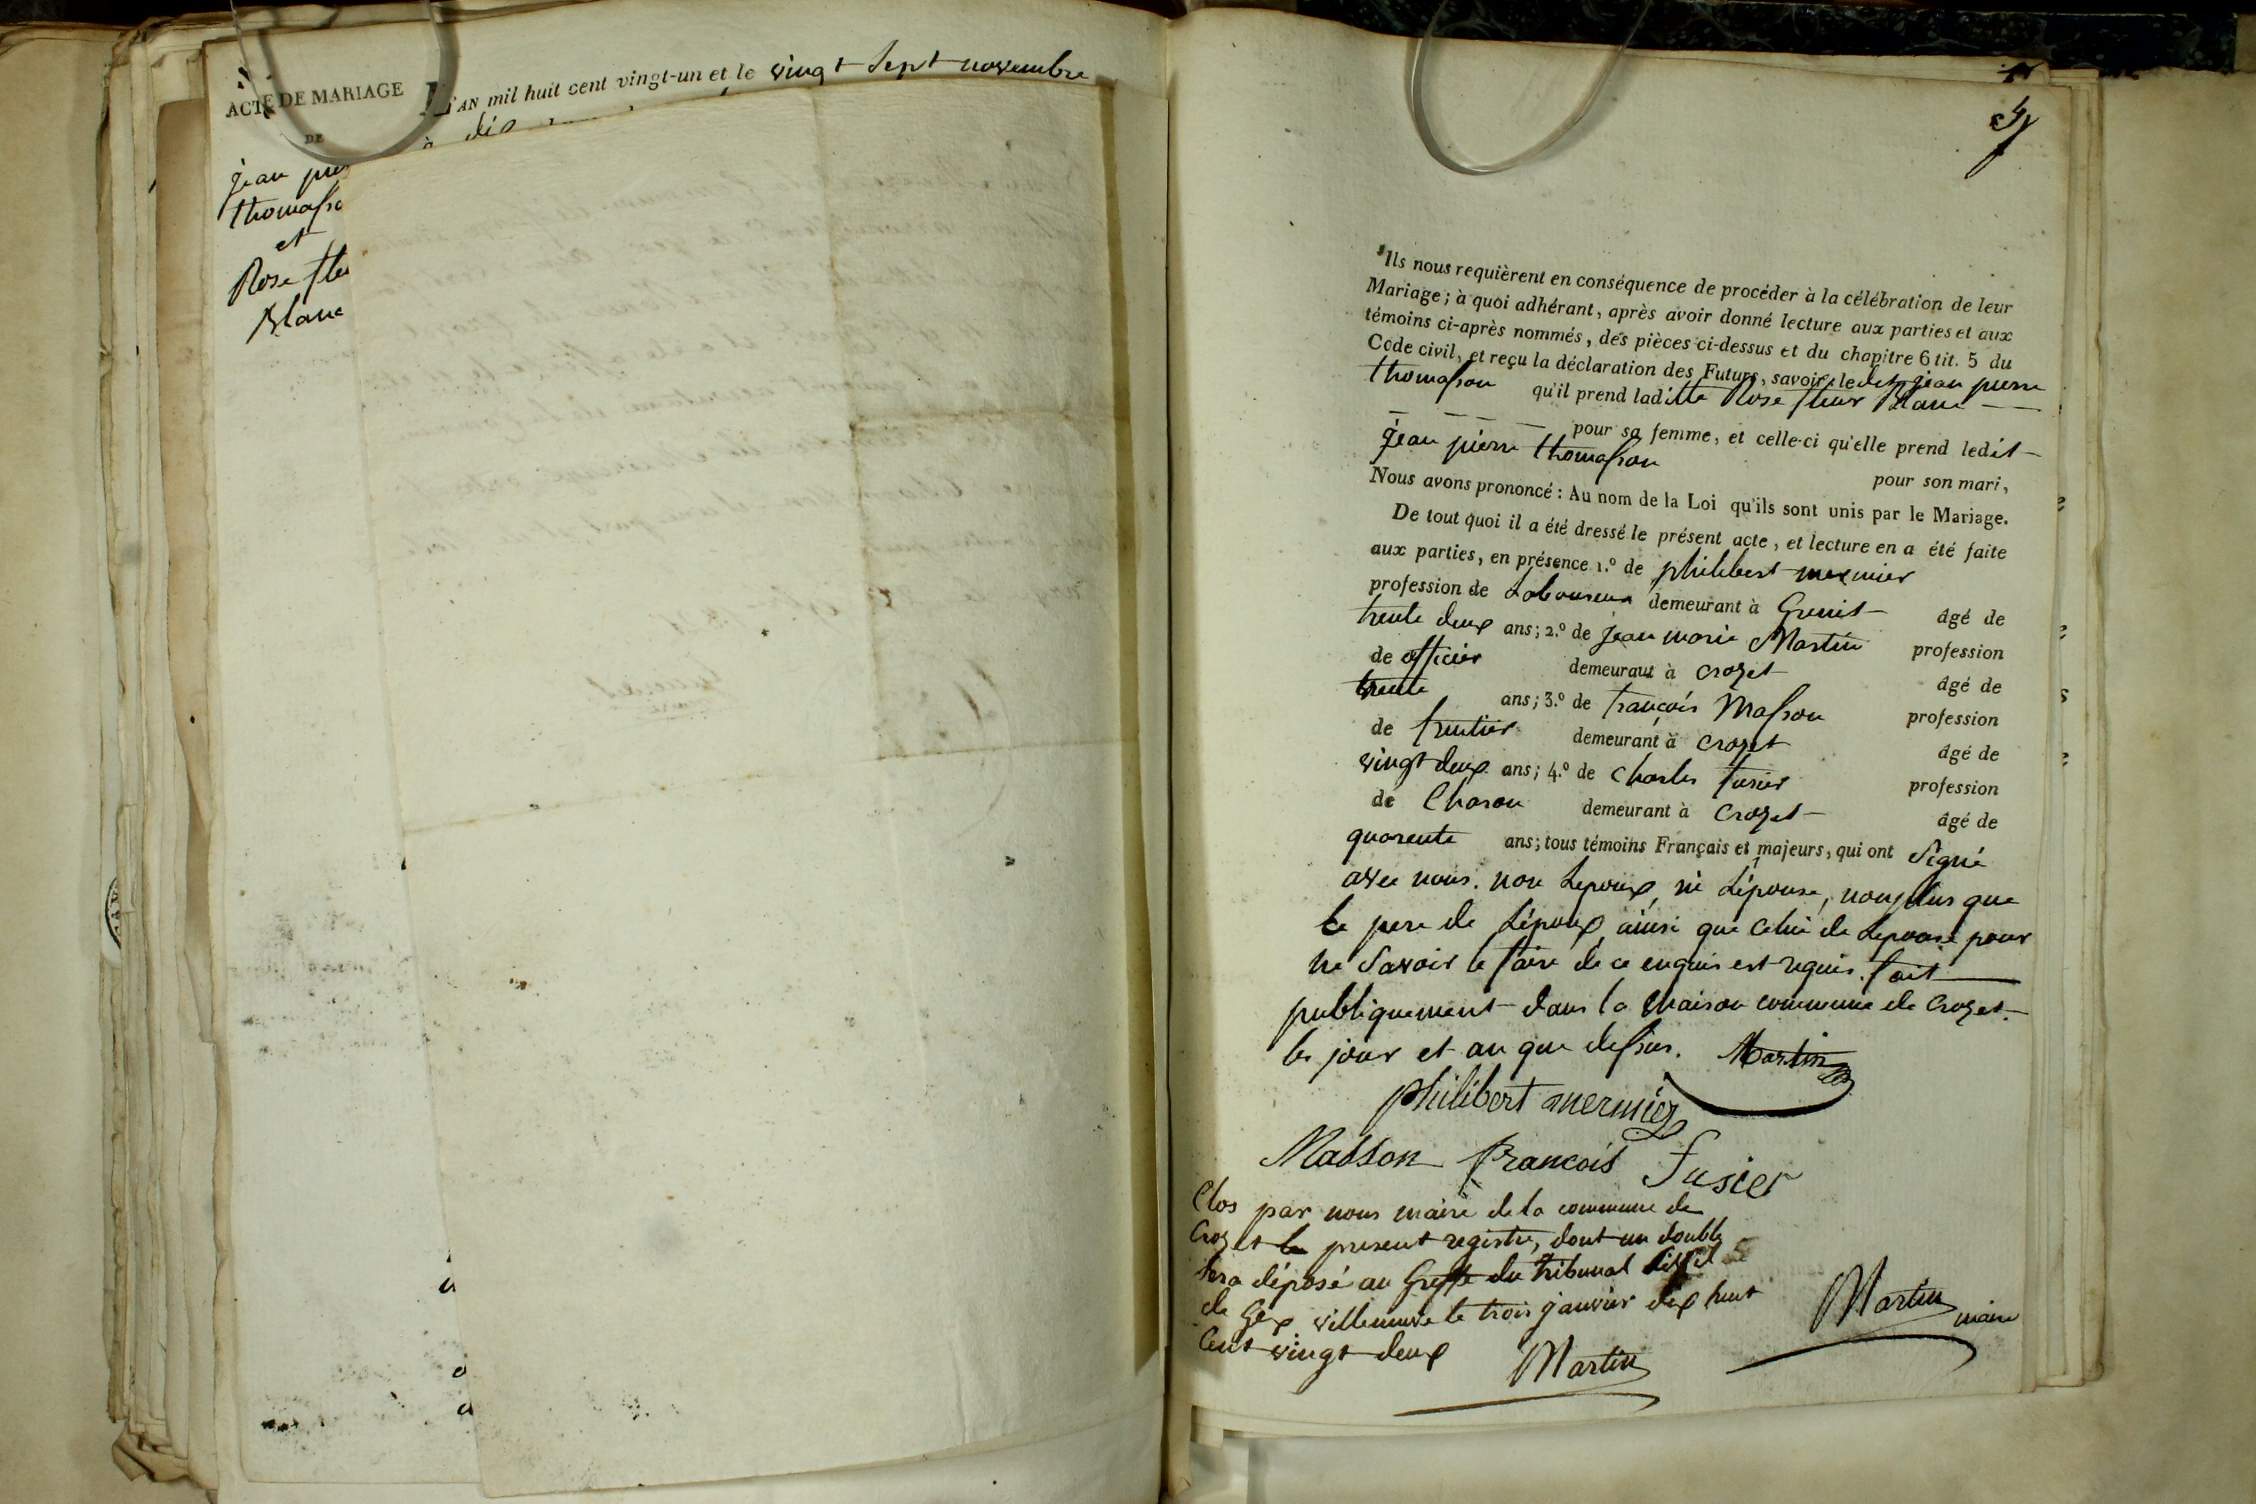 ACTE DE MARIAGE
DE
jean
thomasso
et
Rose fle
Blanc
L'AN mil huit cent vingt-un et le vingt sept novembre
à
4
Ils nous requièrent en conséquence de procéder à la célébration de leur
Mariage; à quoi adhérant, après avoir donné lecture aux parties et aux
témoins ci-après nommés, des pièces ci-dessus et du chapitre 6 tit. 5 du
Code civil, et reçu la déclaration des Futurs, savoir: ledit jean pierre
thomasson qu'il prend laditte Rose fleur Blanc
pour sa femme, et celle-ci qu'elle prend ledit
jean pierre thomasson pour son mari,
Nous avons prononcé: Au nom de la Loi qu'ils sont unis par le Mariage.
De tout quoi il a été dressé le présent acte, et lecture en a été faite
aux parties, en présence 1.º de philibert mermier
profession de Laboureur demeurant à Grenit âgé de
trente deux ans; 2.º de jean marie Martin profession
de officier demeurant à crozet âgé de
trente ans; 3.º de françois Masson profession
de fruitier demeurant à crozet âgé de
vingt deux ans; 4.º de charles fusier profession
de Charon demeurant à Crozet âgé de
quarente ans; tous témoins Français et majeurs, qui ont Signé
avec nous. non Lepoux, ni Lépouse, nonplus que
le pere de Lépoux, ainsi que celui de Lepouse pour
ne Savoir le faire de ce enquis est requis. fait
publiquement dans la Maison commune de Crozet.
les jour et an que dessus. Martin
philibert mermier
Masson francois fusier
Clos par nous maire de la commune de
Crozet le present registre, dont un double
Sera déposé au Greffe du tribunal civil
de Gex villeneuve le trois janvier dix huit
Cent vingt deux
Martin
Martin maire